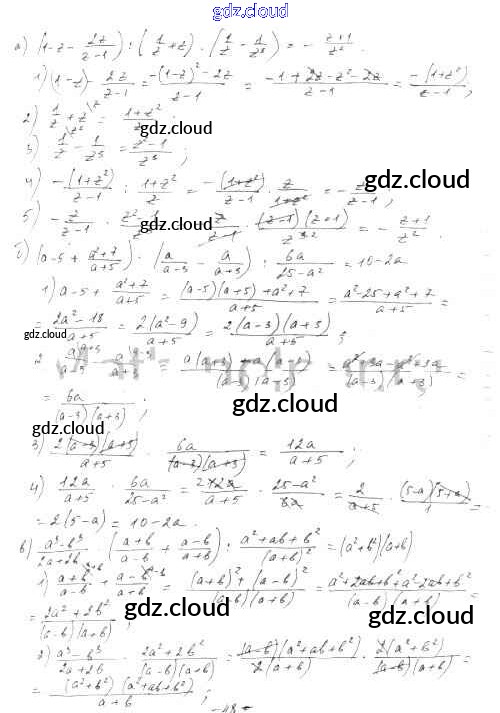 gdz.cloud
а) (1-z - 2z/(z-1)) : (1/z + z) · (1/z - 1/z³) = - (z+1)/z².
1) (1-z) - 2z/(z-1) = (-(1-z)² - 2z)/(z-1) = (-1 + 2z - z² - 2z)/(z-1) = -(1+z²)/(z-1);
2) 1/z + z = (1+z²)/z;
gdz.cloud
3) 1/z - 1/z³ = (z²-1)/z³;
4) -(1+z²)/(z-1) : (1+z²)/z = -(1+z²)/(z-1) · z/(1+z²) = - z/(z-1);
gdz.cloud
5) - z/(z-1) · (z²-1)/z³ = - z/(z-1) · (z-1)(z+1)/z³ = - (z+1)/z².
gdz.cloud
б) (a-5 + (a²+7)/(a+5)) · (a/(a-3) - a/(a+3)) : 6a/(25-a²) = 10-2a
1) a-5 + (a²+7)/(a+5) = ((a-5)(a+5) + a²+7)/(a+5) = (a²-25+a²+7)/(a+5) =
= (2a²-18)/(a+5) = 2(a²-9)/(a+5) = 2(a-3)(a+3)/(a+5);
gdz.cloud
= 6a/((a-3)(a+3));
gdz.cloud
gdz.cloud
3) 2(a-3)(a+3)/(a+5) · 6a/((a-3)(a+3)) = 12a/(a+5);
4) 12a/(a+5) · 6a/(25-a²) = 12a/(a+5) · (25-a²)/6a = 2/(a+5) · (5-a)(5+a)/1 =
= 2(5-a) = 10-2a.
gdz.cloud
в) (a³-b³)/(2a+2b) · ((a+b)/(a-b) + (a-b)/(a+b)) : (a²+ab+b²)/(a+b)² = (a²+b²)(a+b)
1) (a+b)/(a-b) + (a-b)/(a+b) = ((a+b)² + (a-b)²)/((a-b)(a+b)) = (a²+2ab+b²+a²-2ab+b²)/((a-b)(a+b)) =
= (2a²+2b²)/((a-b)(a+b));
gdz.cloud
gdz.cloud
2) (a³-b³)/(2a+2b) · (2a²+2b²)/((a-b)(a+b)) = (a-b)(a²+ab+b²)/(2(a+b)) · 2(a²+b²)/((a-b)(a+b)) =
= (a²+b²)(a²+ab+b²)/(a+b);
gdz.cloud